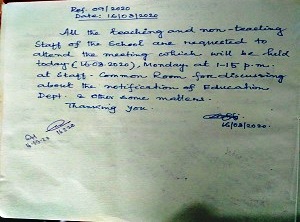 Ref. 09/2020
Date: 16/03/2020
All the teaching and non-teaching
Staff of the School are requested to
attend the meeting which will be held
today (16.03.2020), Monday at 1-15 p.m.
at Staff-Common Room for discussing
about the notification of Education
Dept. & other some matters.
Thanking you.
16/03/2020.